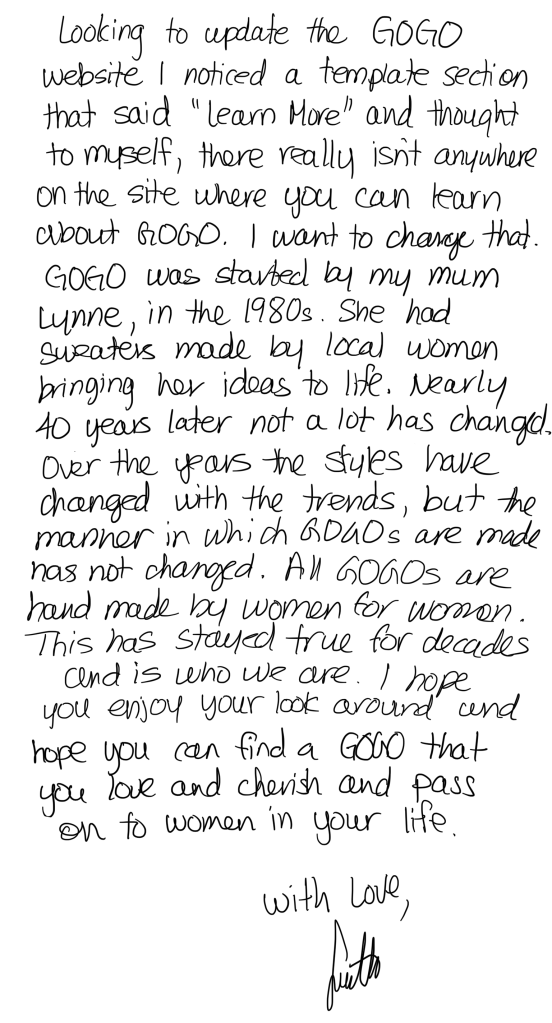 Looking to update the GOGO
website I noticed a template section
that said "Learn More" and thought
to myself, there really isn't anywhere
on the site where you can learn
about GOGO. I want to change that.
GOGO was started by my mum
Lynne, in the 1980s. She had
sweaters made by local women
bringing her ideas to life. Nearly
40 years later not a lot has changed.
Over the years the styles have
changed with the trends, but the
manner in which GOGOs are made
has not changed. All GOGOs are
hand made by women for women.
This has stayed true for decades
and is who we are. I hope
you enjoy your look around and
hope you can find a GOGO that
you love and cherish and pass
on to women in your life.
with Love,